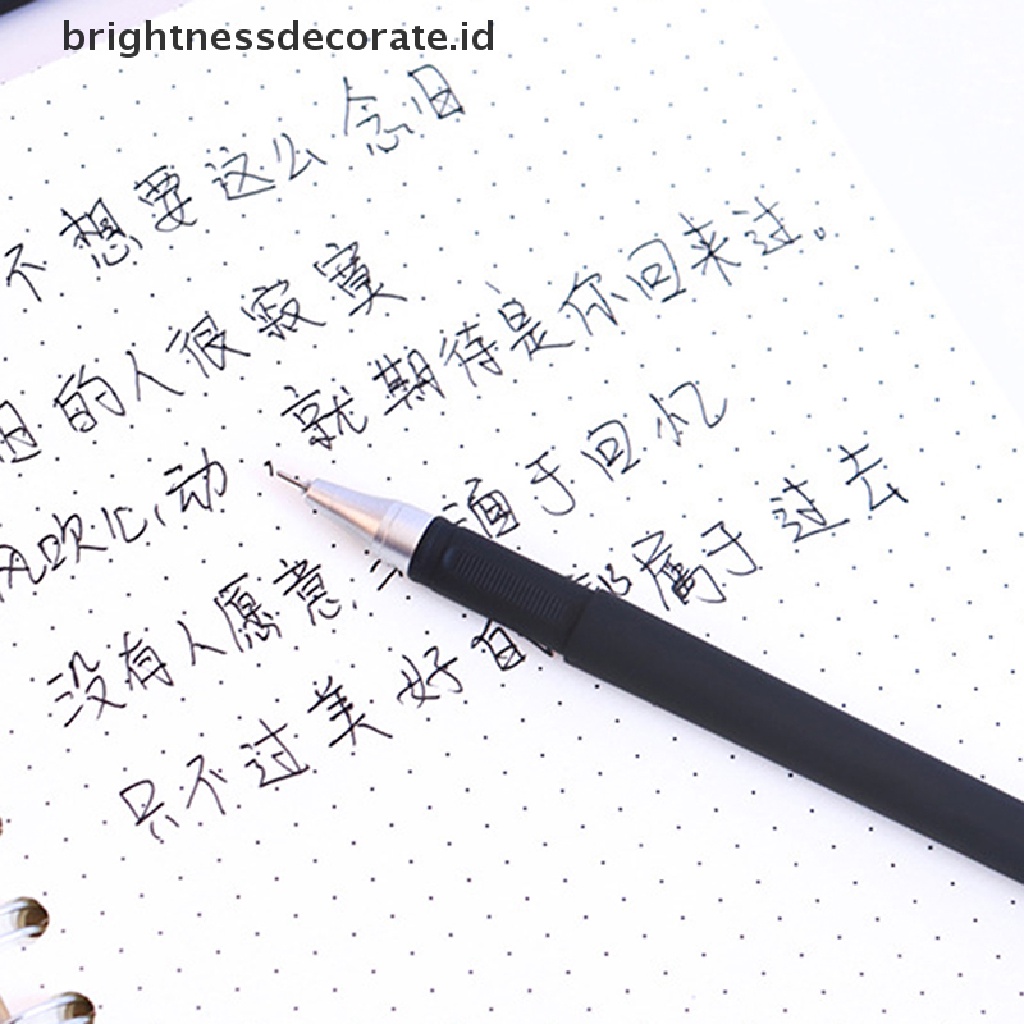 brightnessdecorate.id
不想要这么念旧
旧的人很寂寞
风吹心动，就期待是你回来过。
没有人愿意 面于回忆
只不过美好的 都属于过去